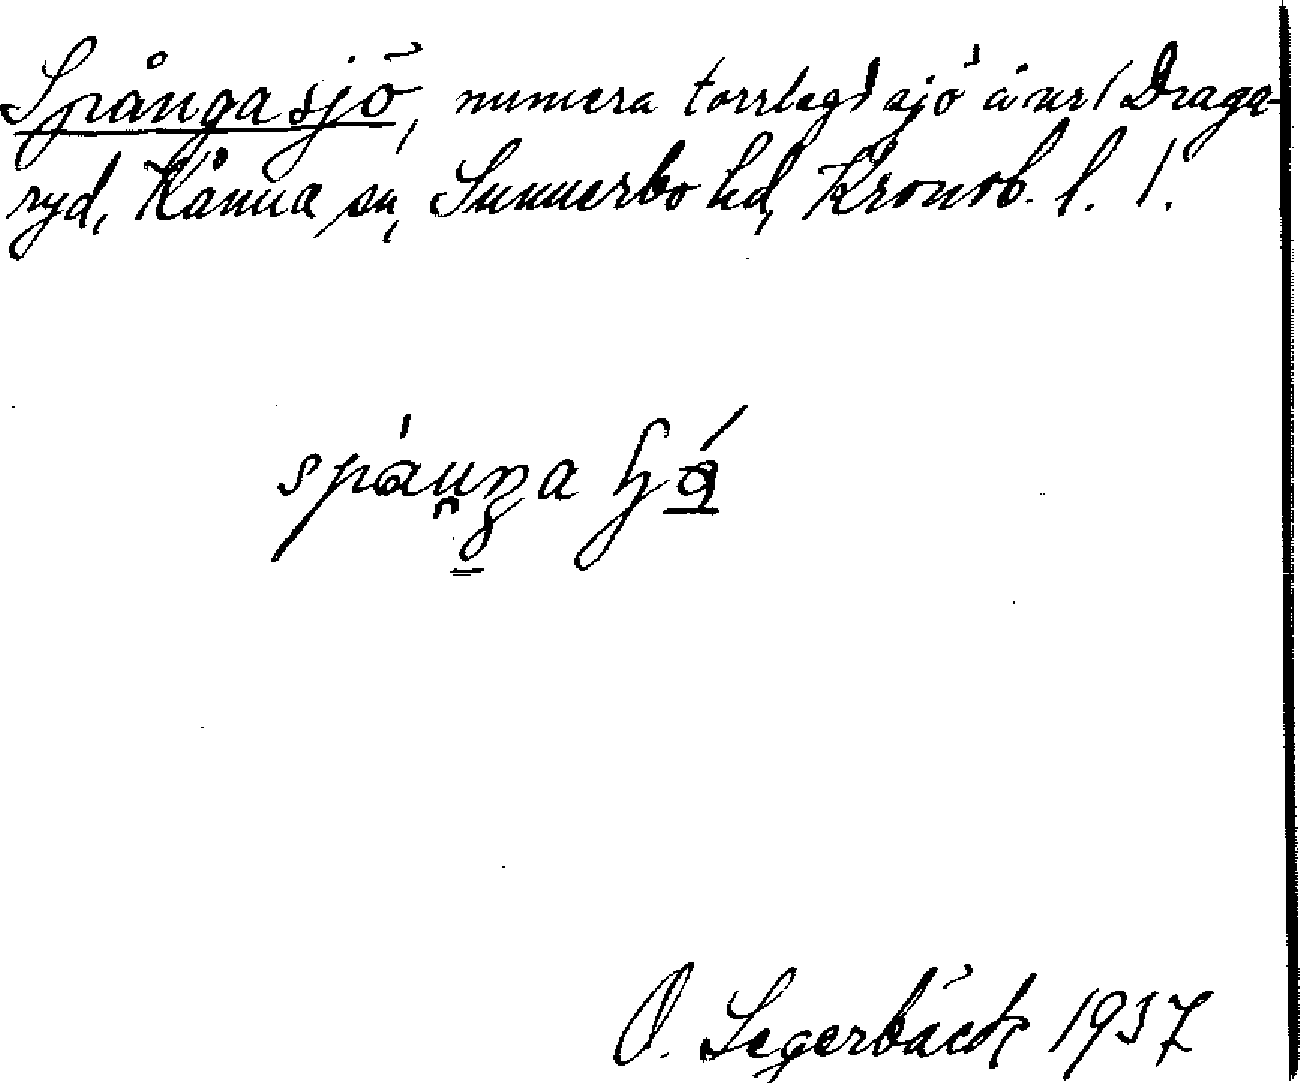 Spångasjö, numera torrlagd sjö ä.nr 1 Draga-
ryd, Kånna sn, Sunnerbo hd, Kronob. l. 1.
O. Segerbäck 1937